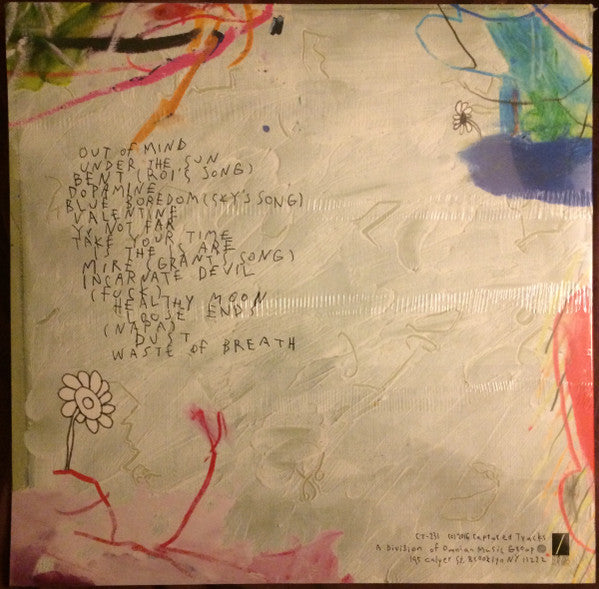 OUT OF MIND
UNDER THE SUN
BENT (ROI'S SONG)
DOPAMINE
BLUE BOREDOM (SKY'S SONG)
VALENTINE
YR NOT FAR
TAKE YOUR TIME
IS THE IS ARE
MIRE (GRANT'S SONG)
INCARNATE DEVIL
(FUCK)
HEALTHY MOON
LOOSE ENDS
(NAPA)
DUST
WASTE OF BREATH
CT-231 ©2016 Captured Tracks
A Division of Omnian Music Group
195 Calyer St, Brooklyn NY 11222